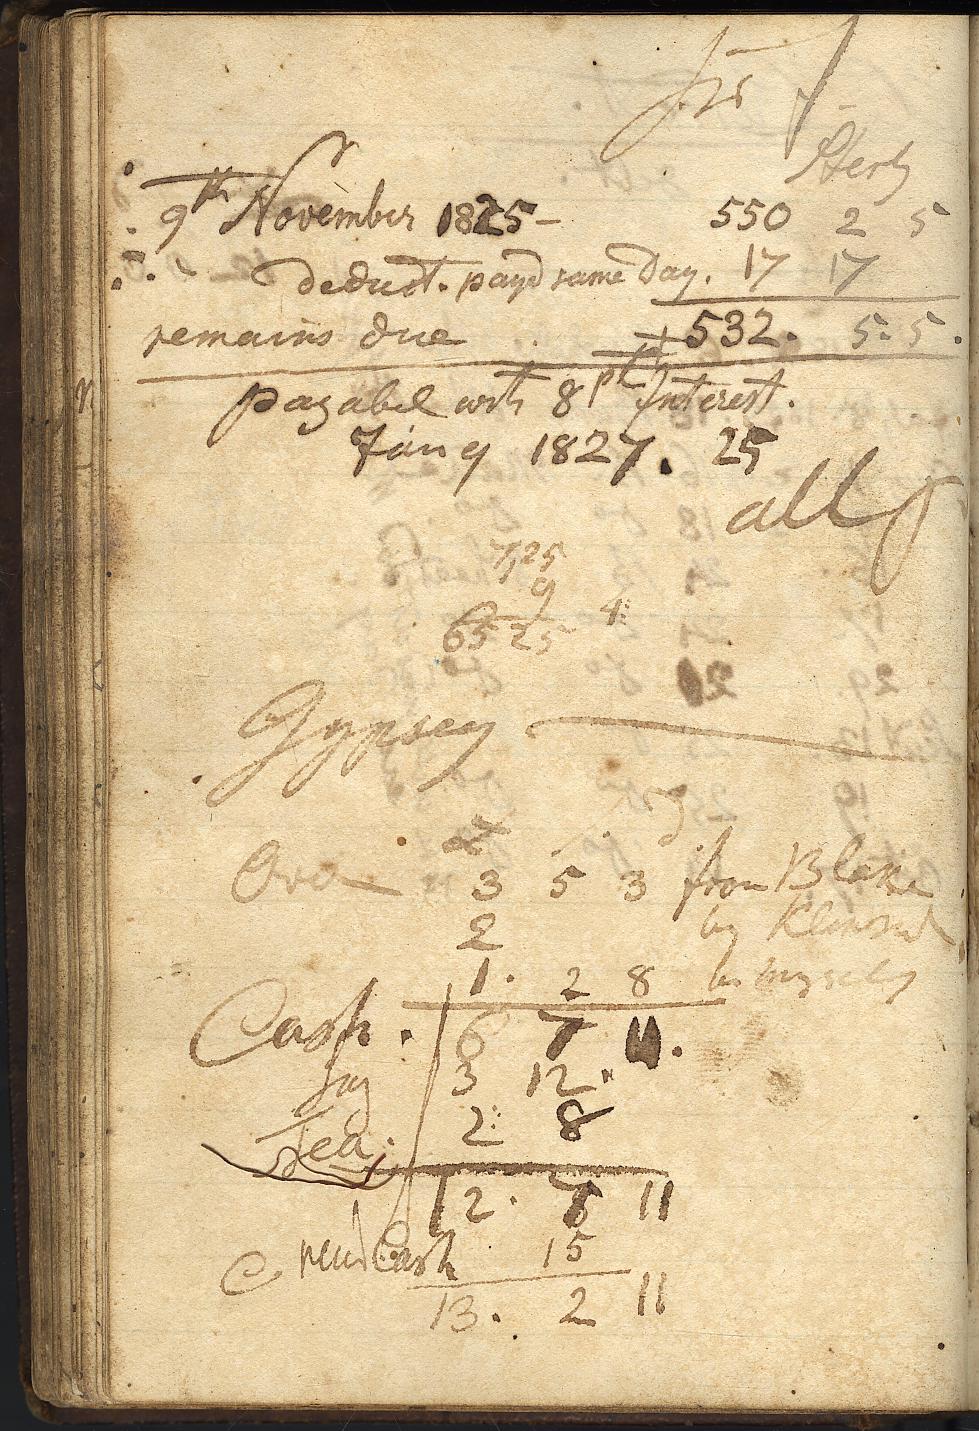 Sterlg
9th November 1825 - 550 2 5
deduct. payd same Day. 17 17
remains due 532. 5. 5.
payabel with 8 pCt Interest.
Jany 1827. 25
all
725
9
6525 4
Gypsey
3 5 3 from Blake
2 by
1. 2 8 by myself
Cash. 6 7 11.
3 12
Tea. 2 8
12. 7 11
Cash 15
13. 2 11